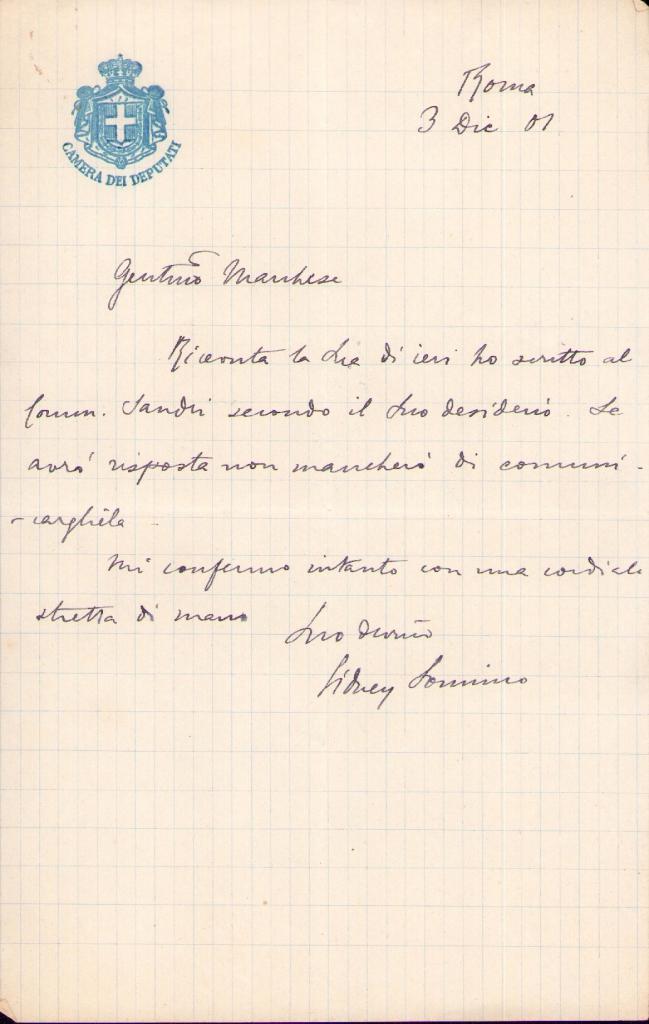 CAMERA DEI DEPUTATI
Roma
3 Dic 01
Gentmo Marchese
Ricevuta la Sua di ieri ho scritto al
Comm. Sandri secondo il Suo desiderio. Se
avrò risposta non mancherò di comuni-
-cargliela
Mi confermo intanto con una cordiale
stretta di mano
Suo devmo
Sidney Sonnino